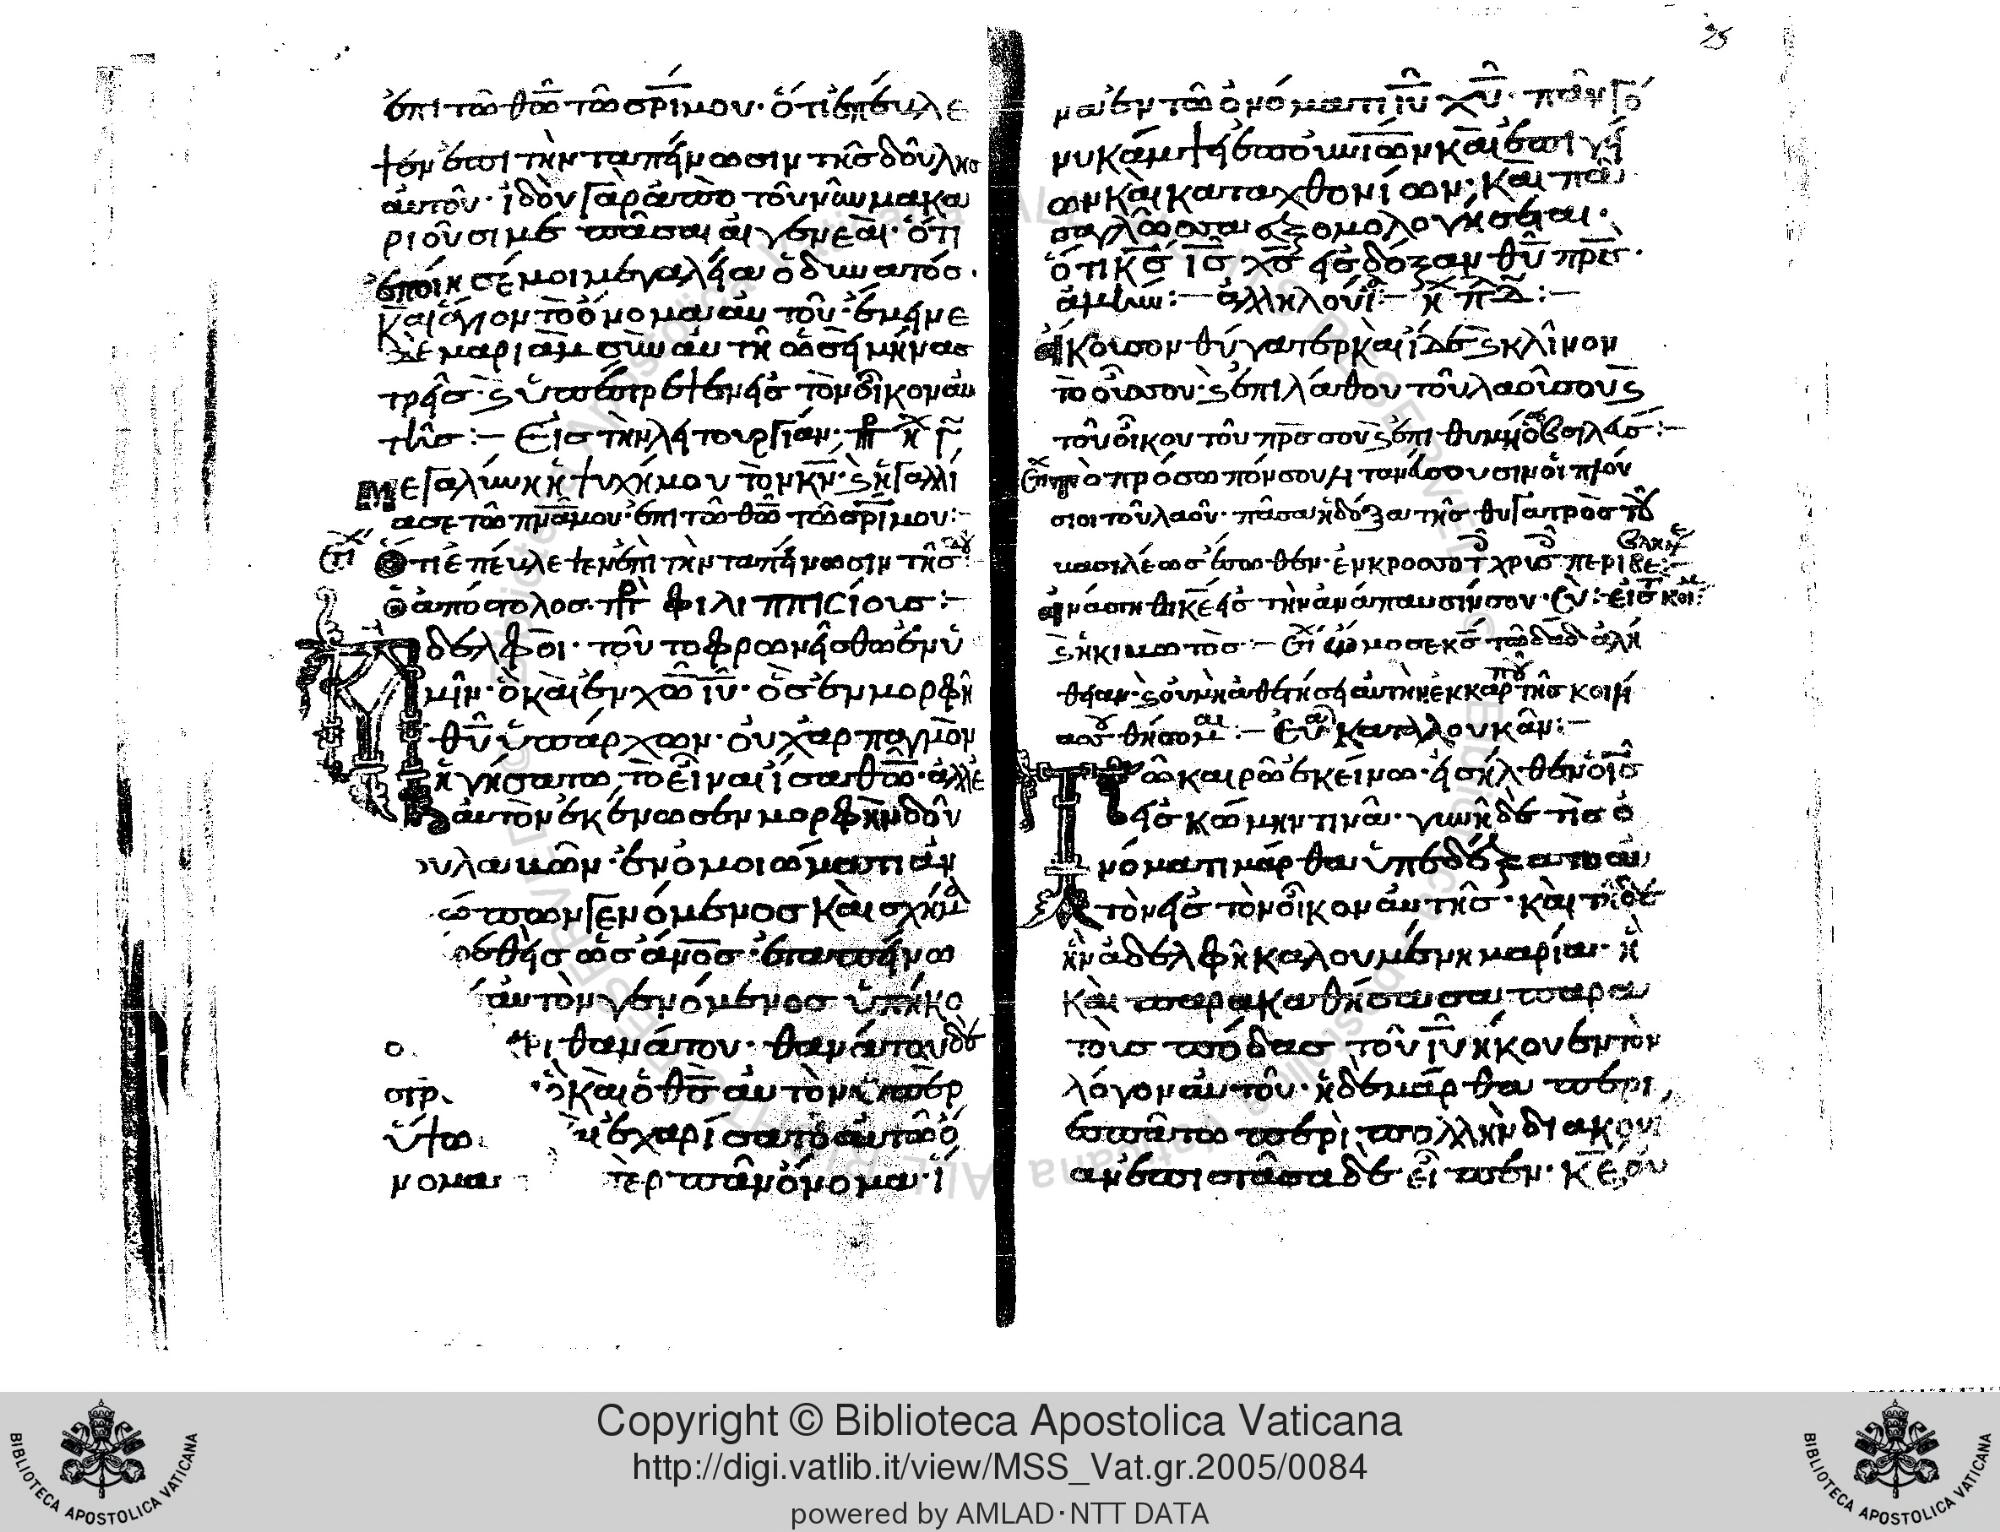 ἐπὶ τῶ θῶ τῶ σρί μου· ὅτι ἐπέυλε
ψεν ἐπι τὴν ταπήνωσιν τῆς δούλης
αυτοῦ· ἰδοὺ γὰρ ἀπὸ τοῦ νῦν μακα
ριοῦσι με πᾶσαι αἱ γενεαὶ· ὅτι
ἐποίησέ μοι μεγαλήα ὁ δυνατός·
Καὶ ἅγιον τὸ όνομα αυτοῦ· ἔμηνε
δὲ μαριὰμ σὺν αυτῆ ὡσὴ μήνας
τρῆς· καὶ ὑπέστρεψεν ἐις τὸν ὂικον ἁυ
τῆς :— Εἰς τὴν λητουργίαν·
Μεγαλύνη ἡ ψυχή μου τὸν κν· καὶ ἠγαλλί
ασε τῶ πνα μου ἐπι τῶ θῶ τῶ σρί μου:—
Ὅτι ἐπέυλεψεν ἐπὶ τὴν ταπήνωσιν τῆς
Ὁ ἀπόστολος· πρ φιλιππισίους :—
δελφοὶ· τοῦτο φρωνῆσθω ἐν ὑ
μῖν· ὃ καὶ ἐν χῶ ιῦ· ὃς ἐν μορφῆ
θῦ ὑπάρχων· ουχ ἁρπαγμὸν
ἡγήσατω τὸ εἶναι ίσα θῶ· ἀλλὲ
αυτὸν ἐκένωσεν μορφὴν δοῦ
υλα μων· ἐν ὁμοιώματι ἀν
ώπων γενόμενος Καὶ σχήμ
εθῆς ὡς ἄνος· ἐταπήνω
αυτὸν γενόμενος ὑπήκο
ο ρι θανάτου· θανάτου δὲ
στρ ὃ Καὶ ὁ θς αυτὸν ὑπερ
ὑψω ἐχαρίσατο αυτῶ ὄ
νομα πὲρ πᾶν ὄνομα· ἵ
μα ἐν τῶ ὀνόματι ιῦ χῦ· πᾶν γό
νυ κάμψη ἐπουνίων καὶ ἐπιγή
ων καὶ καταχθονίων· Καὶ πᾶ
σα γλῶσσα ἐξομολογήσεται·
ὅτι κς ις χς ἐις δόξαν θῦ πρς·
ἀμὴν :— ἀλληλούϊα :—
Ἄκουσον θύγατερ καὶ ἴδε καὶ κλῖνον
τὸ οὖς σου· καὶ ἐπιλάθου τοῦ λαοῦ σου καὶ
τοῦ οἴκου τοῦ πρς σου
τὸ πρόσωπόν σου λιτανέουσιν οἱ πλού
σιοι τοῦ λαοῦ· πᾶσα ἡ δόξα τῆς θυγατρὸς τοῦ
βασιλέως ἔσωθεν· ἐν κροσσοτ χρυσ περιβε:—
ἀνάστηθι κε ἐις τὴν ἀνάπαυσίν σου· σὺ
καὶ ἡ κιβωτὸς :— ὤμοσε κς τῶ δαδ ἀλή
θηαν· καὶ ου μὴ ἀθετήση αυτὴν· ἐκ καρπ τῆς κοιλ
:— Εὐα Κατὰ λουκᾶν:—
Τῶ καιρῶ ἐκείνω· ἐισήλθεν ὁ ις
ἐις κώμην τινὰ· γυνὴ δὲ τὶς ὀ
νόματι μάρθα ὑπεδέξατο ἀυ
τὸν ἐις τὸν ὂικον ἁυτῆς· καὶ τῆδε
ἦν ἀδελφῆ καλουμένη μαρία· ἣ
Καὶ παρακαθήσασα παρὰ
τοὺς πόδας τοῦ ιῦ ἤκουεν τὸν
λόγον αυτοῦ· ἡ δὲ μάρθα περι
εσπᾶτω περὶ πολλὴν διακονί
αν ἐπιστᾶσα δὲ εἶπεν· Κε, ου
Copyright © Biblioteca Apostolica Vaticana
http://digi.vatlib.it/view/MSS_Vat.gr.2005/0084
powered by AMLAD·NTT DATA
BIBLIOTECA APOSTOLICA VATICANA
BIBLIOTECA APOSTOLICA VATICANA